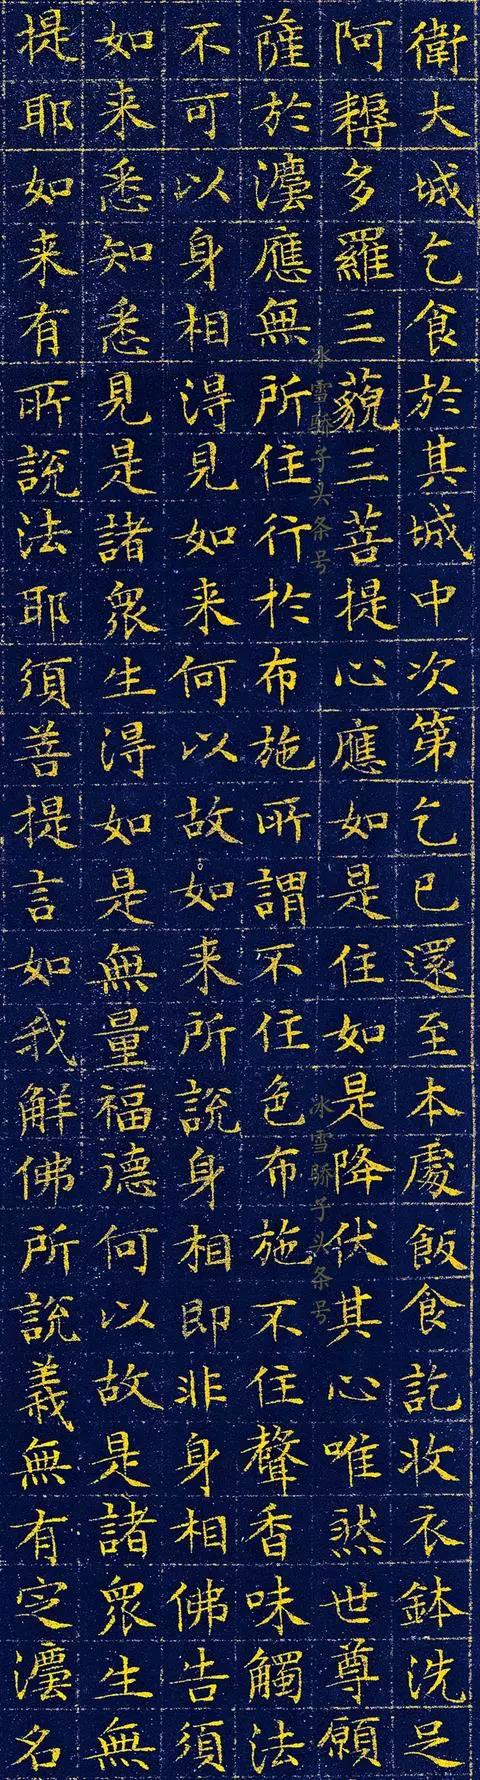 衛大城乞食於其城中次第乞已還至本處飯食訖收衣鉢洗足
阿耨多羅三藐三菩提心應如是住如是降伏其心唯然世尊願
薩於灋應無所住行於布施所謂不住色布施不住聲香味觸法
不可以身相得見如来何以故如来所說身相即非身相佛告須
如来悉知悉見是諸衆生得如是無量福德何以故是諸衆生無
提耶如来有所說法耶須菩提言如我解佛所說義無有定灋名
冰雪骄子头条号
冰雪骄子头条号